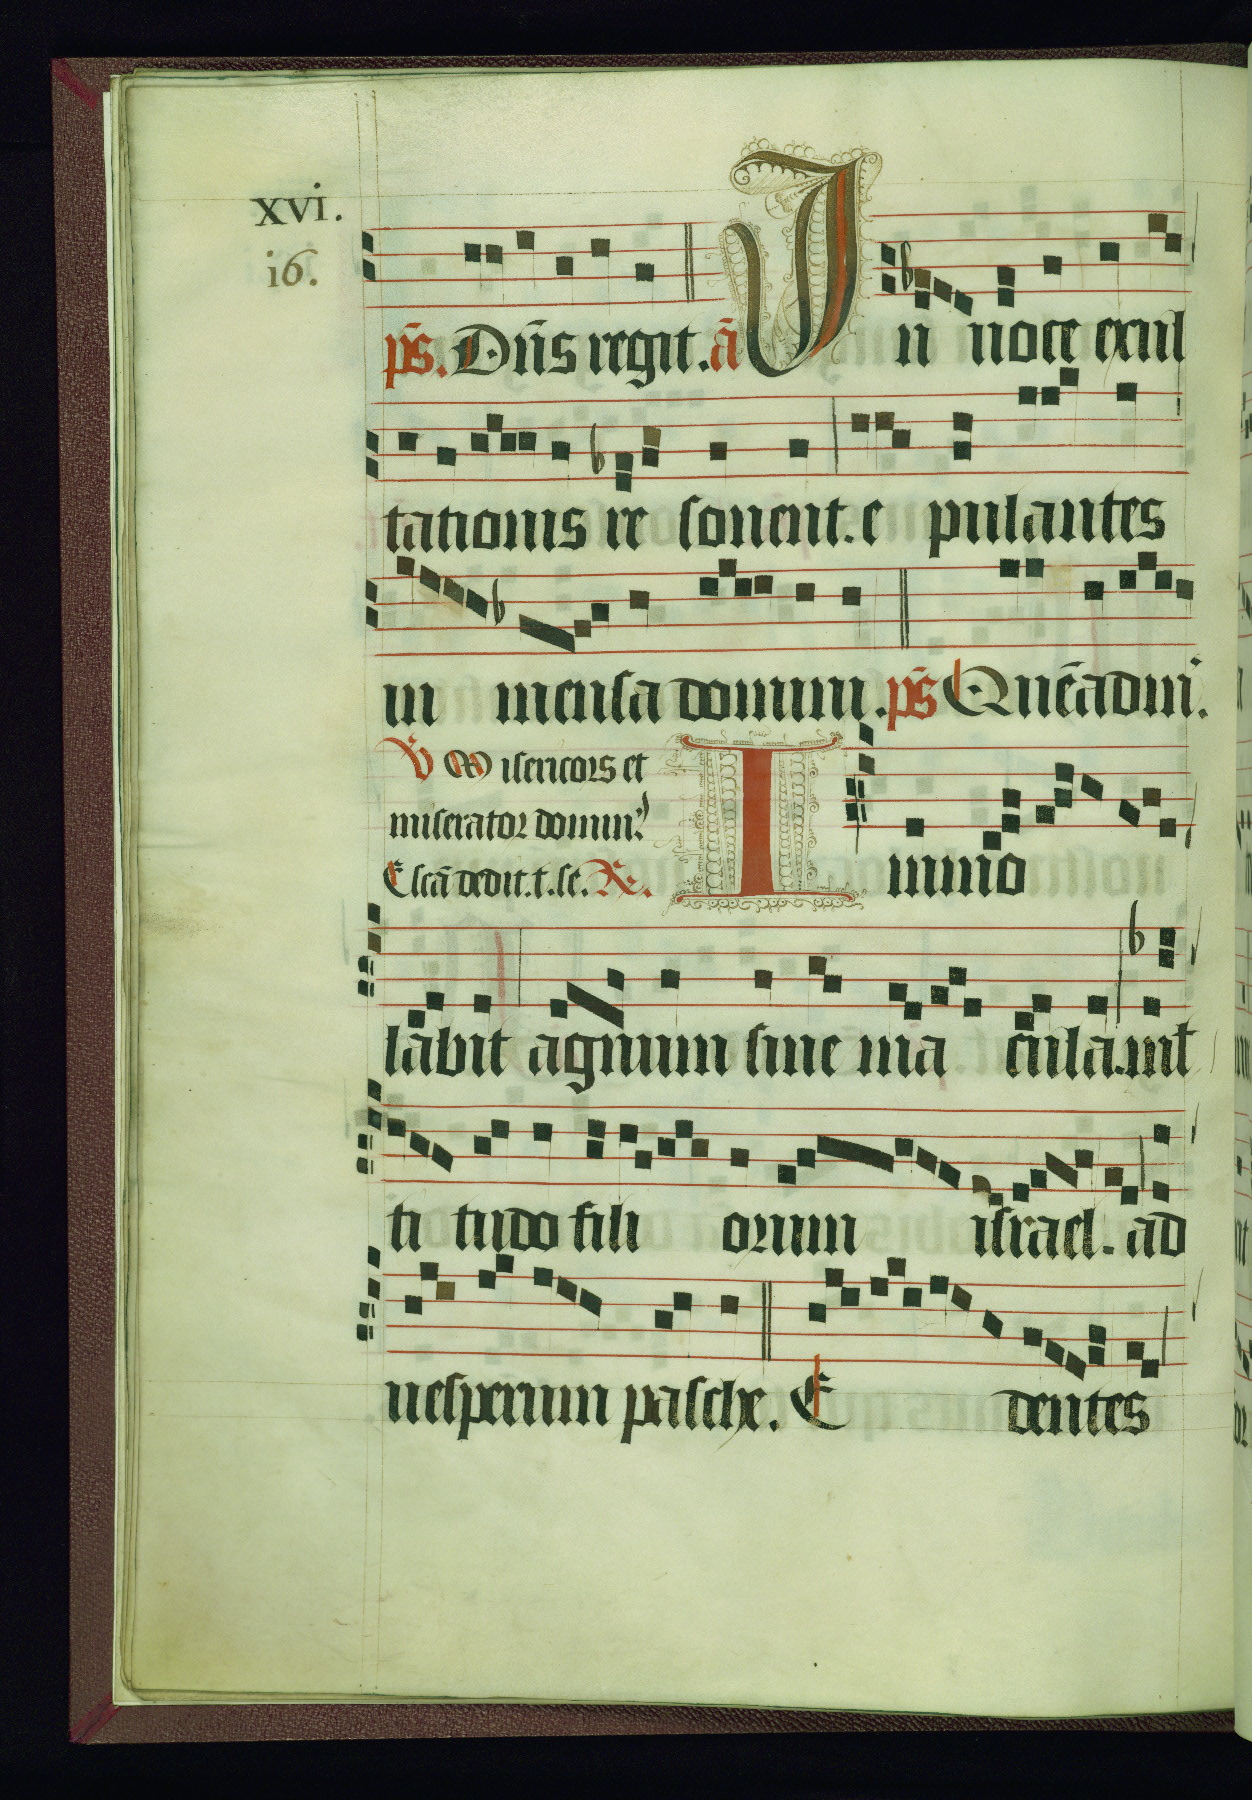 xvi.
i6.
ps̄. Dn̄s regit. ā In voce exul
tationis re sonent. e pulantes
in mensa domini. ps̄ Quēadm̄.
V Misericors et
miserator domin9
Escā dedit. t. se. R.
Immo
labit agnum sine ma cula. mlt
ti tudo fili orum israel. ad
vesperum pasche. E dentes